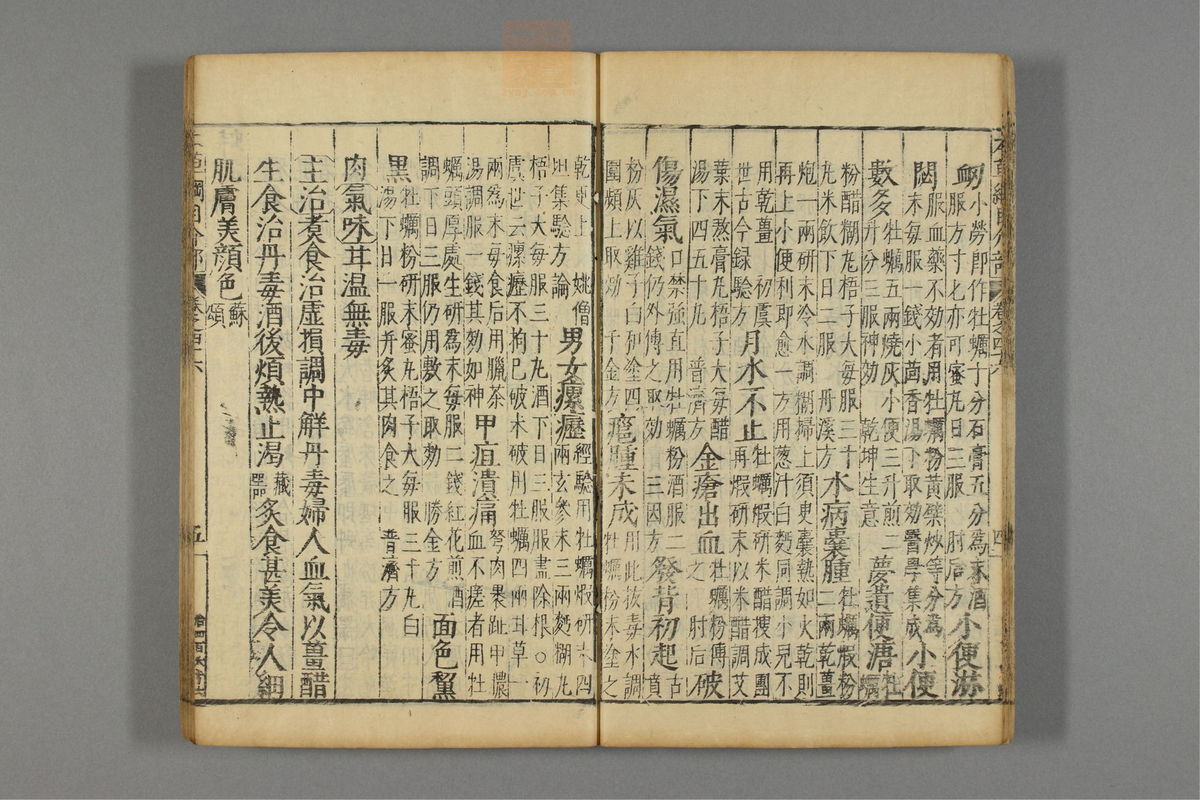 本草綱目介部 卷之四十六 四
衂 小勞即作牡蠣十分石膏五分為末酒
服方寸匕亦可蜜丸日三服 肘后方 小便淋
閟 服血藥不効者用牡蠣粉黄蘗炒等分為
末每服一錢小茴香湯下取効 醫學集成 小便
數多 牡蠣五兩燒灰小便三升煎二
升分三服神効 乾坤生意 夢遺便溏 牡蠣
粉醋糊丸梧子大每服三十
丸米飲下日二服 丹溪方 水病囊腫 牡蠣煅粉二兩乾薑
炮一兩研末冷水調糊掃上須臾囊熱如火乾則
再上小便利即愈一方用葱汁白麪同調小兒不
用乾薑 初虞世古今録驗方 月水不止 牡蠣煅研米醋搜成團
再煅研末以米醋調艾
葉末熬膏丸梧子大每醋
湯下四五十丸 普濟方 金瘡出血 牡蠣粉傅之 肘后 破
傷濕氣 口禁強直用牡蠣粉酒服二
錢仍外傅之取効 三因方 發背初起 古賁
粉灰以雞子白和塗四
圍頻上取効 千金方 癰腫未成 用此拔毒水調
牡蠣粉末塗之
乾更上 姚僧坦集驗方論 男女瘰癧 經驗用牡蠣煅研末四
兩玄參末三兩麪糊丸
梧子大每服三十丸酒下日三服盡除根○初
虞世云瘰癧不拘已破未破用牡蠣四兩甘草一
兩為末每食后用臘茶
湯調服一錢其効如神 甲疽潰痛 弩肉裹趾甲膿
血不瘥者用牡
蠣頭厚處生研為末每服二錢紅花煎酒
調下日三服仍用敷之取効 勝金方 面色黧
黑 牡蠣粉研末蜜丸梧子大每服三十丸白
湯下日一服并炙其肉食之 普濟方
肉氣味甘温無毒
主治煮食治虛損調中解丹毒婦人血氣以薑醋
生食治丹毒酒後煩熱止渴 藏器 炙食甚美令人細
肌膚美顔色 蘇頌
本草綱目介部 卷之四十六 五